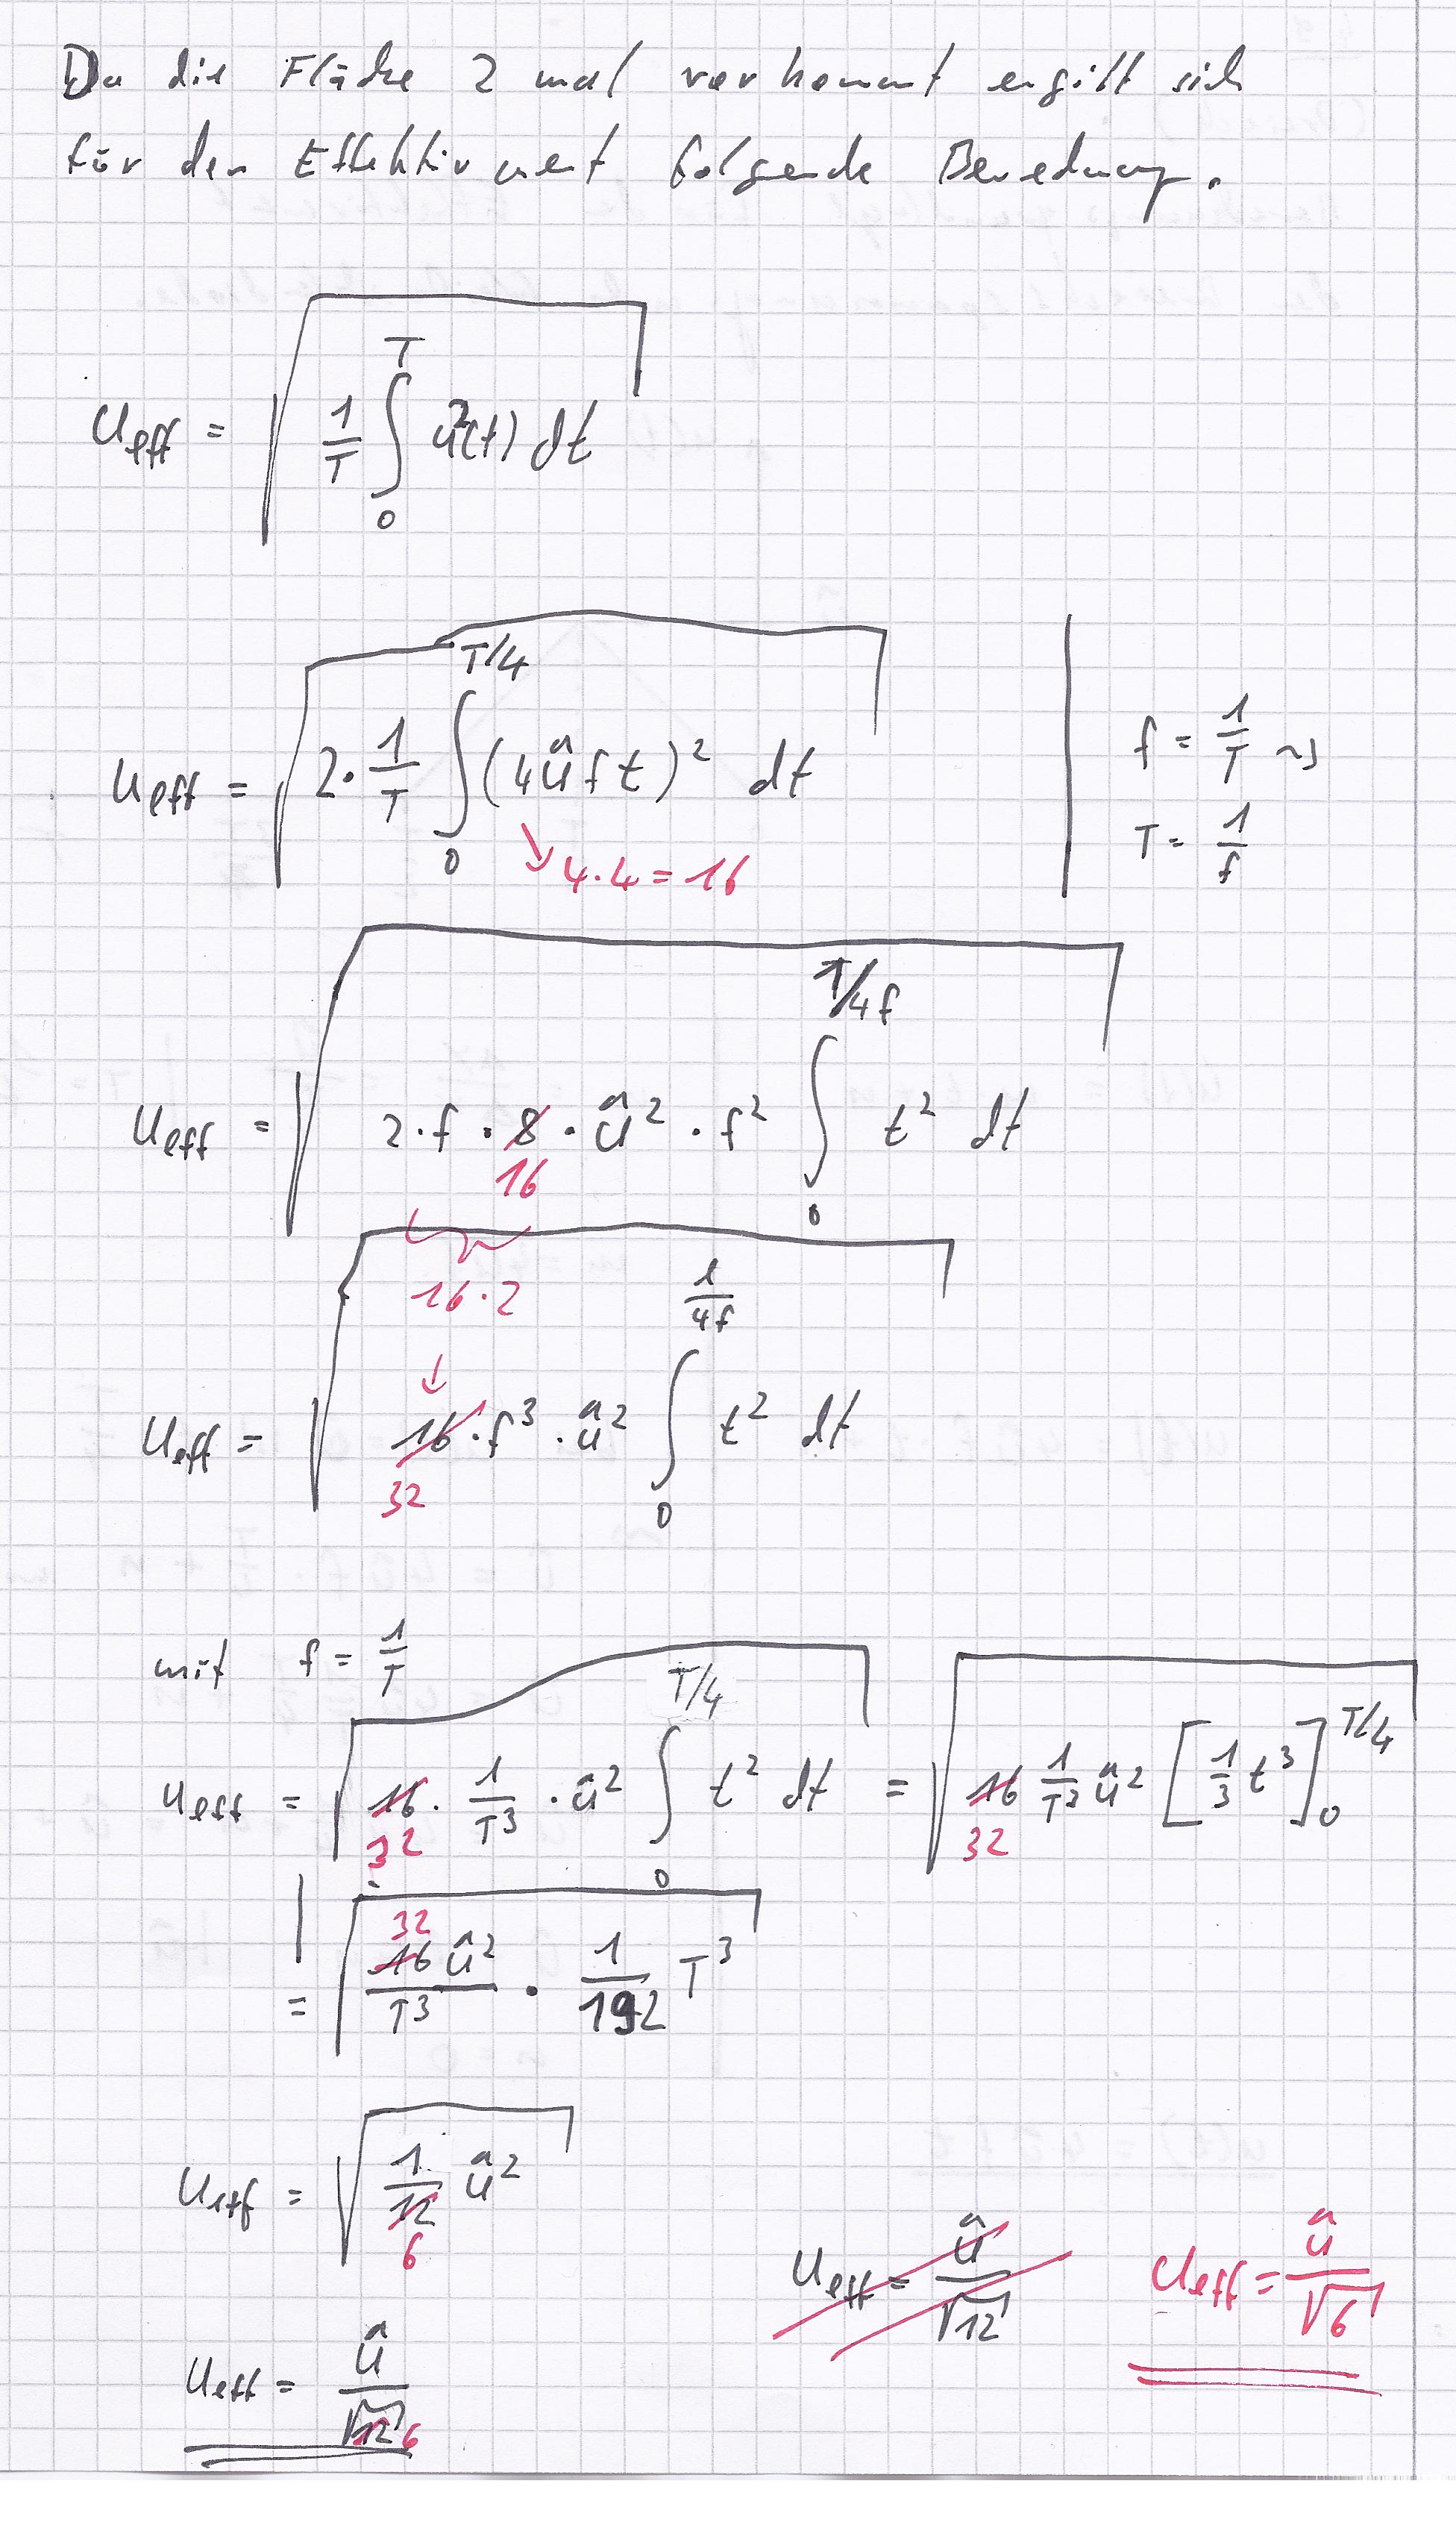 Da die Fläche 2 mal vorkommt ergibt sich
für den Effektivwert folgende Berechnung.
U_eff = √( 1/T ∫_0^T u²(t) dt )
U_eff = √( 2 · 1/T ∫_0^{T/4} (4 û f t)² dt ) | f = 1/T ⇝
↘ 4·4 = 16 | T = 1/f
U_eff = √( 2 · f · 8 · û² · f² ∫_0^{1/4f} t² dt )
16
16·2
↓
U_eff = √( 16 · f³ · û² ∫_0^{1/4f} t² dt )
32
mit f = 1/T
U_eff = √( 16 · 1/T³ · û² ∫_0^{T/4} t² dt ) = √( 16 1/T³ û² [1/3 t³]_0^{T/4} )
32 32
32
= √( 16 û²/T³ · 1/192 T³ )
U_eff = √( 1/12 û² )
6
U_eff = û/√12 U_eff = û/√6
U_eff = û/√12 6